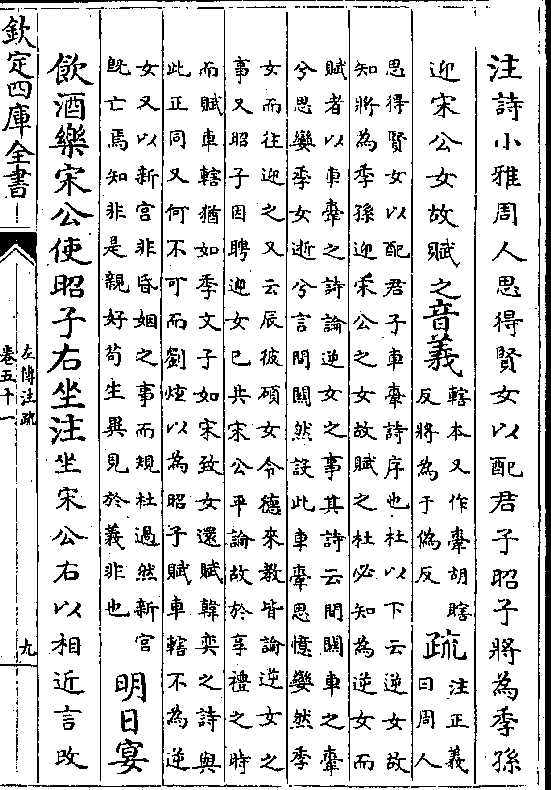 注詩小雅周人思得賢女以配君子昭子將為季孫
迎宋公女故賦之音義
轄本又作舝胡瞎
反將為于偽反
疏
注正義
曰周人
思得賢女以配君子車舝詩序也杜以下云逆女故
知將為季孫迎宋公之女故賦之杜必知為逆女而
賦者以車舝之詩論逆女之事其詩云間關車之舝
兮思孌季女逝兮言間關然設此車舝思憶孌然季
女而往迎之又云辰彼碩女令德來教皆論逆女之
事又昭子因聘迎女已共宋公平論故於享禮之時
而賦車轄猶如季文子如宋致女還賦韓奕之詩與
此正同又何不可而劉炫以為昭子賦車轄不為逆
女又以新宮非昏姻之事而規杜過然新宮
既亡焉知非是親好苟生異見於義非也
明日宴
飲酒樂宋公使昭子右坐注坐宋公右以相近言改
欽定四庫全書
左傳注疏
卷五十一
九